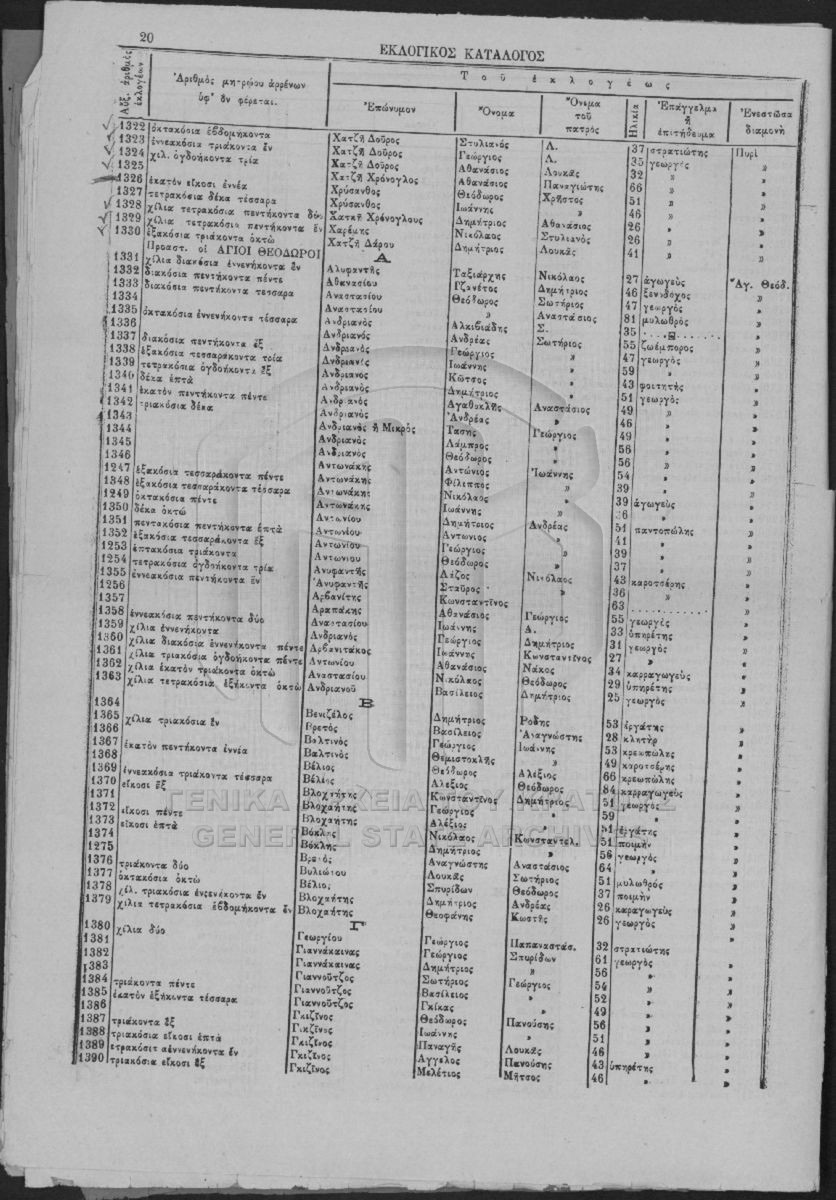 20
ΕΚΛΟΓΙΚΟΣ ΚΑΤΑΛΟΓΟΣ
Αὔξ. ἀριθμὸς ἐκλογέων
Ἀριθμὸς μητρώου ἀρρένων ὑφ' ὃν φέρεται.
Τοῦ ἐκλογέως
Ἐπώνυμον Ὄνομα Ὄνομα τοῦ πατρὸς Ἡλικία Ἐπάγγελμα ἢ ἐπιτήδευμα Ἐνεστῶσα διαμονὴ
1322 ὀκτακόσια ἑβδομήκοντα Χατζῆ Δοῦρος Στυλιανὸς Λ. 37 στρατιώτης Πυρὶ
1323 ἐννεακόσια τριάκοντα ἓν Χατζῆ Δοῦρος Γεώργιος Λ. 35 γεωργὸς »
1324 χίλ. ὀγδοήκοντα τρία Χατζῆ Δοῦρος Ἀθανάσιος Λουκᾶς 32 » »
1325 Χατζῆ Χρόνογλος Ἀθανάσιος Παναγιώτης 66 » »
1326 ἑκατὸν εἴκοσι ἐννέα Χρύσανθος Θεόδωρος Χρῆστος 51 » »
1327 τετρακόσια δέκα τέσσαρα Χρύσανθος Ἰωάννης » 46 » »
1328 χίλια τετρακόσια πεντήκοντα δύο Χατκῆ Χρόνογλους Δημήτριος Ἀθανάσιος 26 » »
1329 χίλια τετρακόσια πεντήκοντα ἓν Χαρέμης Νικόλαος Στυλιανὸς 26 » »
1330 ἑξακόσια τριάκοντα ὀκτὼ Χατζῆ Δάρου Δημήτριος Λουκᾶς 41 » »
Προαστ. οἱ ΑΓΙΟΙ ΘΕΟΔΩΡΟΙ Α
1331 χίλια διακόσια ἐννενήκοντα ἓν Ἀλυφαντῆς Ταξιάρχης Νικόλαος 27 ἀγωγεὺς Ἁγ. Θεόδ.
1332 διακόσια πεντήκοντα πέντε Ἀθανασίου Τζανέτος Δημήτριος 46 ξενοδόχος »
1333 διακόσια πεντήκοντα τέσσαρα Ἀναστασίου Θεόδωρος Σωτήριος 47 γεωργὸς »
1334 Ἀναστασίου » Ἀναστάσιος 81 μυλωθρὸς »
1335 ὀκτακόσια ἐννενήκοντα τέσσαρα Ἀνδριανὸς Ἀλκιβιάδης Σ. 35 ....... »
1336 Ἀνδριανὸς Ἀνδρέας Σωτήριος 55 ζωέμπορος »
1337 διακόσια πεντήκοντα ἓξ Ἀνδριανὸς Γεώργιος » 47 γεωργὸς »
1338 ἑξακόσια τεσσαράκοντα τρία Ἀνδριανὸς Ἰωάννης » 59 » »
1339 τετρακόσια ὀγδοήκοντα ἓξ Ἀνδριανὸς Κῶτσος » 43 φοιτητὴς »
1340 δέκα ἑπτὰ Ἀνδριανὸς Δημήτριος » 51 γεωργὸς »
1341 ἑκατὸν πεντήκοντα πέντε Ἀνδριανὸς Ἀγαθοκλῆς Ἀναστάσιος 49 » »
1342 τριακόσια δέκα Ἀνδριανὸς Ἀνδρέας » 46 » »
1343 Ἀνδριανὸς ἢ Μικρὸς Τασης Γεώργιος 49 » »
1344 Ἀνδριανὸς Λάμπρος » 56 » »
1345 Ἀνδριανὸς Θεόδωρος » 56 » »
1346 Ἀντωνάκης Ἀντώνιος Ἰωάννης 54 » »
1247 ἑξακόσια τεσσαράκοντα πέντε Ἀντωνάκης Φίλιππος » 39 » »
1348 ἑξακόσια τεσσαράκοντα τέσσαρα Ἀντωνάκης Νικόλαος » 39 ἀγωγεὺς »
1249 ὀκτακόσια πέντε Ἀντωνάκης Ἰωάννης » 36 » »
1350 δέκα ὀκτὼ Ἀντωνίου Δημήτριος Ἀνδρέας 51 παντοπώλης »
1351 πεντακόσια πεντήκοντα ἑπτὰ Ἀντωνίου Ἀντωνιος » 41 » »
1352 ἑξακόσια τεσσαράκοντα ἓξ Ἀντωνίου Γεώργιος » 39 » »
1253 ἑπτακόσια τριάκοντα Ἀντωνιου Θεόδωρος » 37 » »
1254 τετρακόσια ὀγδοήκοντα τρία Ἀνυφαντῆς Λάζος Νικόλαος 43 καροτσέρης »
1355 ἐννεακόσια πεντήκοντα ἓν Ἀνυφαντῆς Σταῦρος » 36 » »
1256 Ἀρβανίτης Κωνσταντῖνος 63 ........... »
1357 Ἀραπάκης Ἀθανάσιος Γεώργιος 55 γεωργὸς »
1358 ἐννεακόσια πεντήκοντα δύο Ἀναστασίου Ἰωάννης Α. 33 ὑπηρέτης »
1359 χίλια ἐννενήκοντα Ἀνδριανὸς Γεώργιος Δημήτριος 31 γεωργὸς »
1360 χίλια διακόσια ἐννενήκοντα πέντε Ἀρβανιτάκος Ἰωάννης Κωνσταντῖνος 27 » »
1361 χίλια τριακόσια ὀγδοήκοντα πέντε Ἀντωνίου Ἀθανάσιος Νάκος 34 καρραγωγεὺς »
1362 χίλια ἑκατὸν τριάκοντα ὀκτὼ Ἀναστασίου Νικόλαος Θεόδωρος 29 ὑπηρέτης »
1363 χίλια τετρακόσια ἑξήκοντα ὀκτὼ Ἀνδριανοῦ Βασίλειος Δημήτριος 25 γεωργὸς »
Β
1364 Βενιζέλος Δημήτριος Ρόδης 53 ἐργάτης »
1365 χίλια τριακόσια ἓν Βρετὸς Βασίλειος Ἀναγνώστης 28 κλητὴρ »
1366 Βαλτινὸς Γεώργιος Ἰωάννης 53 κρεωπώλης »
1367 ἑκατὸν πεντήκοντα ἐννέα Βαλτινὸς Θεμιστοκλῆς » 49 καροτσέρης »
1368 Βέλιος Θεόδωρος Ἀλέξιος 66 κρεωπώλης »
1369 ἐννεακόσια τριάκοντα τέσσαρα Βέλιος Ἀλέξιος Θεόδωρος 84 καρραγωγεὺς »
1370 εἴκοσι ἓξ Βλοχαήτης Κωνσταντῖνος Δημήτριος 51 γεωργὸς »
1371 Βλοχαήτης Γεώργιος » 59 » »
1372 εἴκοσι πέντε Βλοχαήτης Ἀλέξιος » 41 ἐργάτης »
1373 εἴκοσι ἑπτὰ Βόκλης Νικόλαος Κωνσταντελ. 51 ποιμὴν »
1374 Βόκλης Δημήτριος » 56 γεωργὸς »
1275 Βρετὸς Ἀναγνώστης Ἀναστάσιος 64 » »
1376 τριάκοντα δύο Βυλιώτου Λουκᾶς Σωτήριος 51 μυλωθρὸς »
1377 ὀκτακόσια ὀκτὼ Βέλιος Σπυρίδων Θεόδωρος 37 ποιμὴν »
1378 χίλ. τριακόσια ἐνενήκοντα ἓν Βλοχαήτης Δημήτριος Ἀνδρέας 26 καραγωγεὺς »
1379 χίλια τετρακόσια ἑβδομήκοντα ἓν Βλοχαήτης Θεοφάνης Κωστῆς 26 γεωργὸς »
Γ
1380 χίλια δύο Γεωργίου Γεώργιος Παπαναστάσ. 32 στρατιώτης »
1381 Γιαννάκαινας Γεώργιος Σπυρίδων 61 γεωργὸς »
1382 Γιαννάκαινας Δημήτριος » 56 » »
1383 Γιαννοῦτζος Σωτήριος Γεώργιος 54 » »
1384 τριάκοντα πέντε Γιαννοῦτζος Βασίλειος » 52 » »
1385 ἑκατὸν ἑξήκοντα τέσσαρα Γιαννοῦτζος Γκίκας » 49 » »
1386 Γκιζῖνος Θεόδωρος Πανούσης 56 » »
1387 τριάκοντα ἓξ Γκιζῖνος Ἰωάννης » 51 » »
1388 τριακόσια εἴκοσι ἑπτὰ Γκιζῖνος Παναγῆς Λουκᾶς 46 » »
1389 ετρακόσιτ αἐννενήκοντα ἓν Γκιζῖνος Ἀγγελος Πανούσης 43 ὑπηρέτης »
1390 τριακόσια εἴκοσι ἓξ Γκιζῖνος Μελέτιος Μῆτσος 46 » »
ΓΕΝΙΚΑ ΑΡΧΕΙΑ ΤΟΥ ΚΡΑΤΟΥΣ
GENERAL STATE ARCHIVES